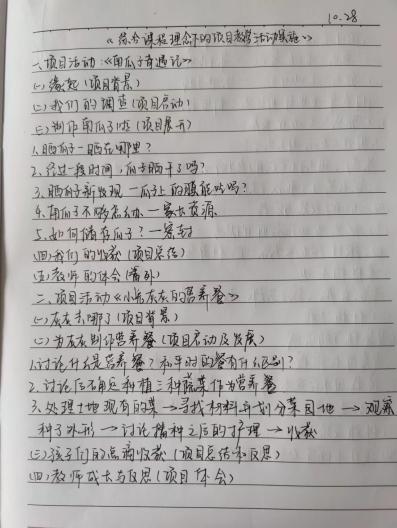 10.28
《综合课程理念下的项目教学活动实施》
一、项目活动:《南瓜子奇遇记》
(一)缘起(项目背景)
(二)我们的调查(项目启动)
(三)制作南瓜子啦(项目展开)
1.晒瓜子—晒在哪里?
2.经过一段时间,瓜子晒干了吗?
3.晒瓜子新发现—瓜子上的膜能吃吗?
4.南瓜子不够怎么办—家长资源
5.如何储存瓜子?—密封
(四)我们的收获(项目总结)
(五)教师的体会
二、项目活动《小兔灰灰的营养餐》
(一)灰灰去哪了(项目背景)
(二)为灰灰制作营养餐(项目启动及发展)
1.讨论什么是营养餐?和平时的餐有什么区别?
2.讨论后确定种植三种蔬菜作为营养餐
3.处理土地现有的菜→寻找材料并划分菜园地→观察
种子外形→讨论播种之后的护理→收获
(三)孩子们的点滴收获(项目总结和反思)
(四)教师成长与反思(项目体会)